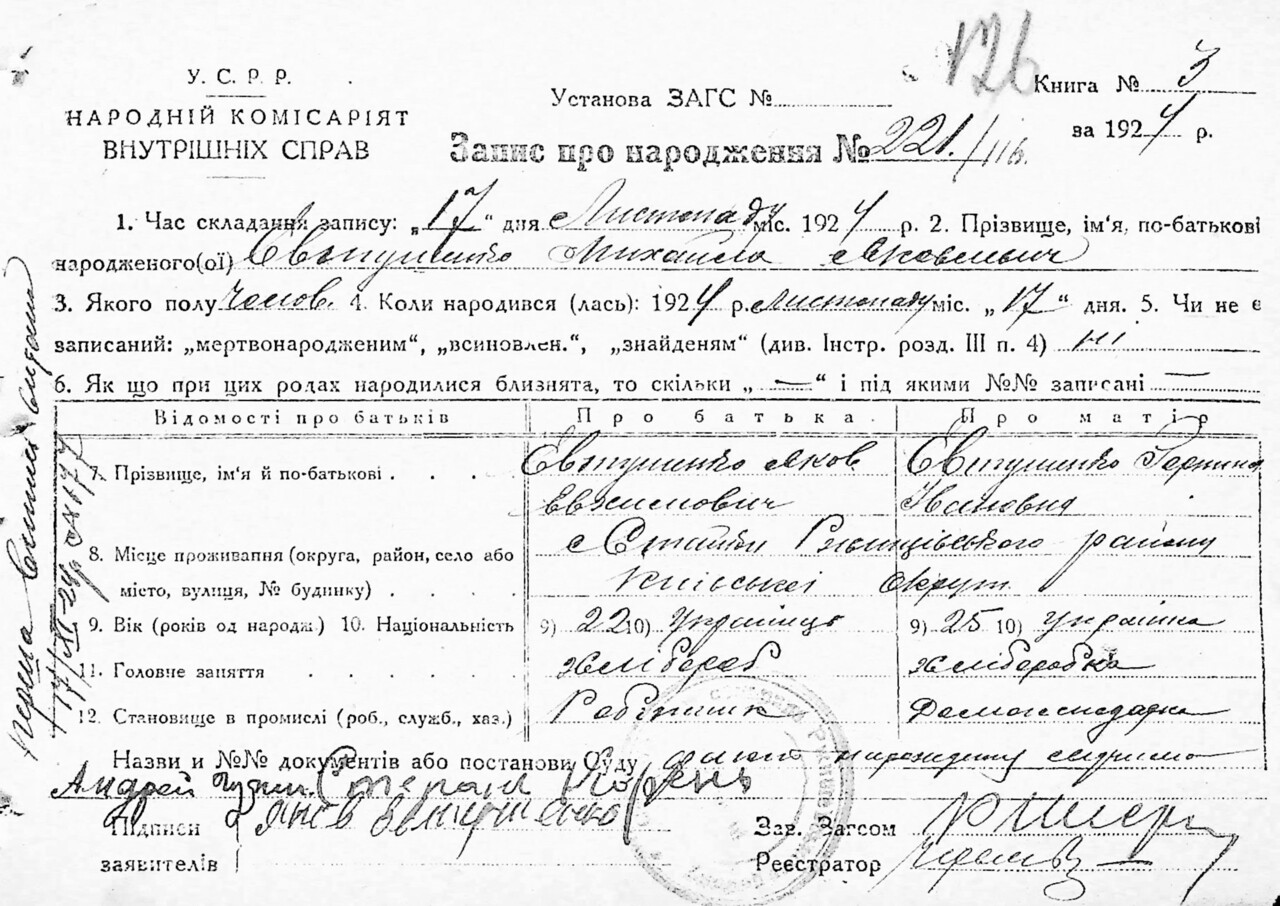 126
У. С. Р. Р.
НАРОДНІЙ КОМІСАРІЯТ
ВНУТРІШНІХ СПРАВ
Установа ЗАГС №
Книга № 3
за 1924 р.
Запис про народження № 221/116.
1. Час складання запису: „17“ дня Листопаду міс. 1924 р. 2. Прізвище, ім'я, по-батькові
народженого(ої) Євтушенко Михайла Яковлевич
3. Якого полу Чолов. 4. Коли народився (лась): 1924 р. Листопаду міс. „17“ дня. 5. Чи не є
записаний: „мертвонародженим“, „всиновлен.“, „знайденям“ (див. Інстр. розд. III п. 4) ні
6. Як що при цих родах народилися близнята, то скільки „—“ і під якими №№ записані —
Відомості про батьків Про батька Про матір
7. Прізвище, ім'я й по-батькові . . . . Євтушенко Яков Євтушенко
Ивановна
8. Місце проживання (округа, район, село або
с. района
місто, вулиця, № будинку) . . . . Київської Округи
9. Вік (років од народж.) 10. Національність 9) 22 10) Українець 9) 25 10) Українка
11. Головне заняття . . . . . . Хлібороб Хліборобка
12. Становище в промислі (роб., служб., хаз.) Робітник Домогосподарка
Назви и №№ документів або постанови Суду
Андрей Степан
Підписи Яков Евтушенко
заявителів
Зав. Загсом
Реєстратор
17/XI-24 р. № 177